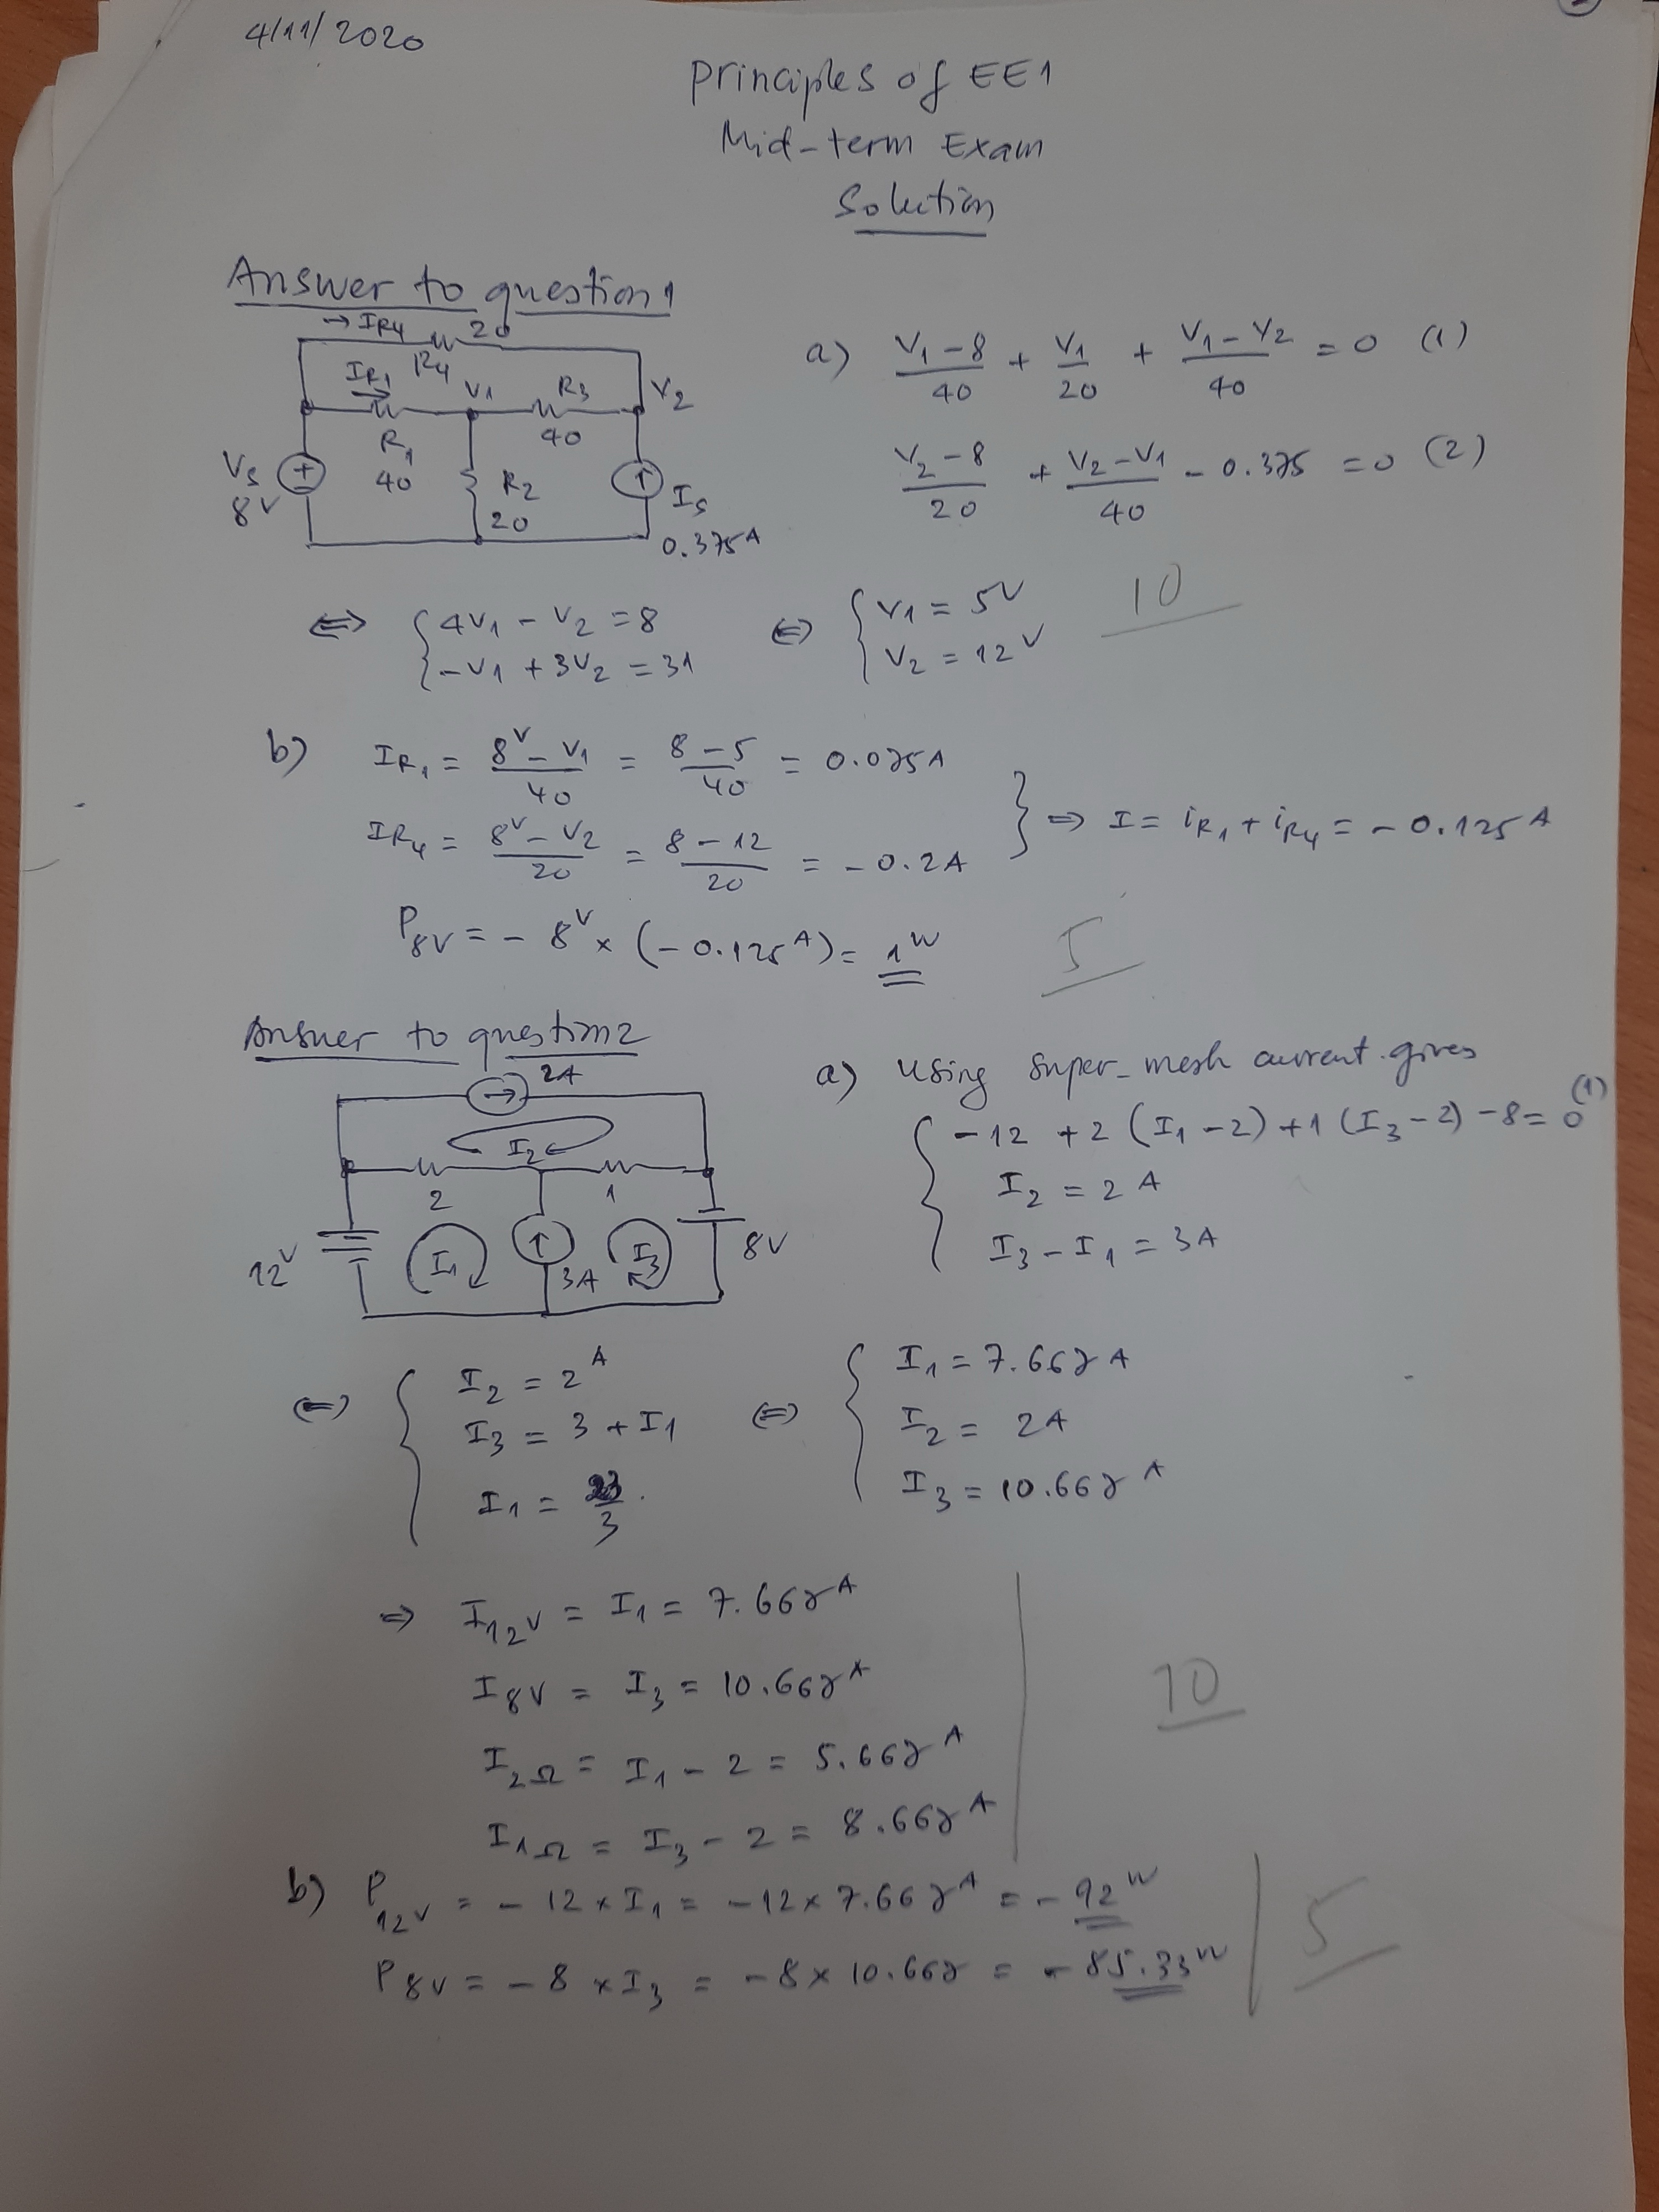 4/11/2020
Principles of EE1
Mid-term Exam
Solution
Answer to question 1
→ IR4 20
R4
IR1 V1 R3 V2
R1 40
40
Vs + R2 Is
8V 20 0.375A
a) (V1 - 8)/40 + V1/20 + (V1 - V2)/40 = 0 (1)
(V2 - 8)/20 + (V2 - V1)/40 - 0.375 = 0 (2)
⇔ { 4V1 - V2 = 8 ⇔ { V1 = 5V 10
-V1 + 3V2 = 31 V2 = 12V
b) IR1 = (8V - V1)/40 = (8 - 5)/40 = 0.075A
IR4 = (8V - V2)/20 = (8 - 12)/20 = -0.2A
} ⇒ I = iR1 + iR4 = -0.125A
P8V = - 8V × (-0.125A) = 1W 5
Answer to question 2
2A
I2
2 1
12V I1 3A I3 8V
a) Using super-mesh current gives
{ -12 + 2 (I1 - 2) + 1 (I3 - 2) - 8 = 0 (1)
I2 = 2A
I3 - I1 = 3A
⇔ { I2 = 2A ⇔ { I1 = 7.667A
I3 = 3 + I1 I2 = 2A
I1 = 23/3. I3 = 10.667A
⇒ I12V = I1 = 7.667A
I8V = I3 = 10.667A 10
I2Ω = I1 - 2 = 5.667A
I1Ω = I3 - 2 = 8.667A
b) P12V = - 12 × I1 = -12 × 7.667A = - 92W 5
P8V = - 8 × I3 = -8 × 10.667 = - 85.33W